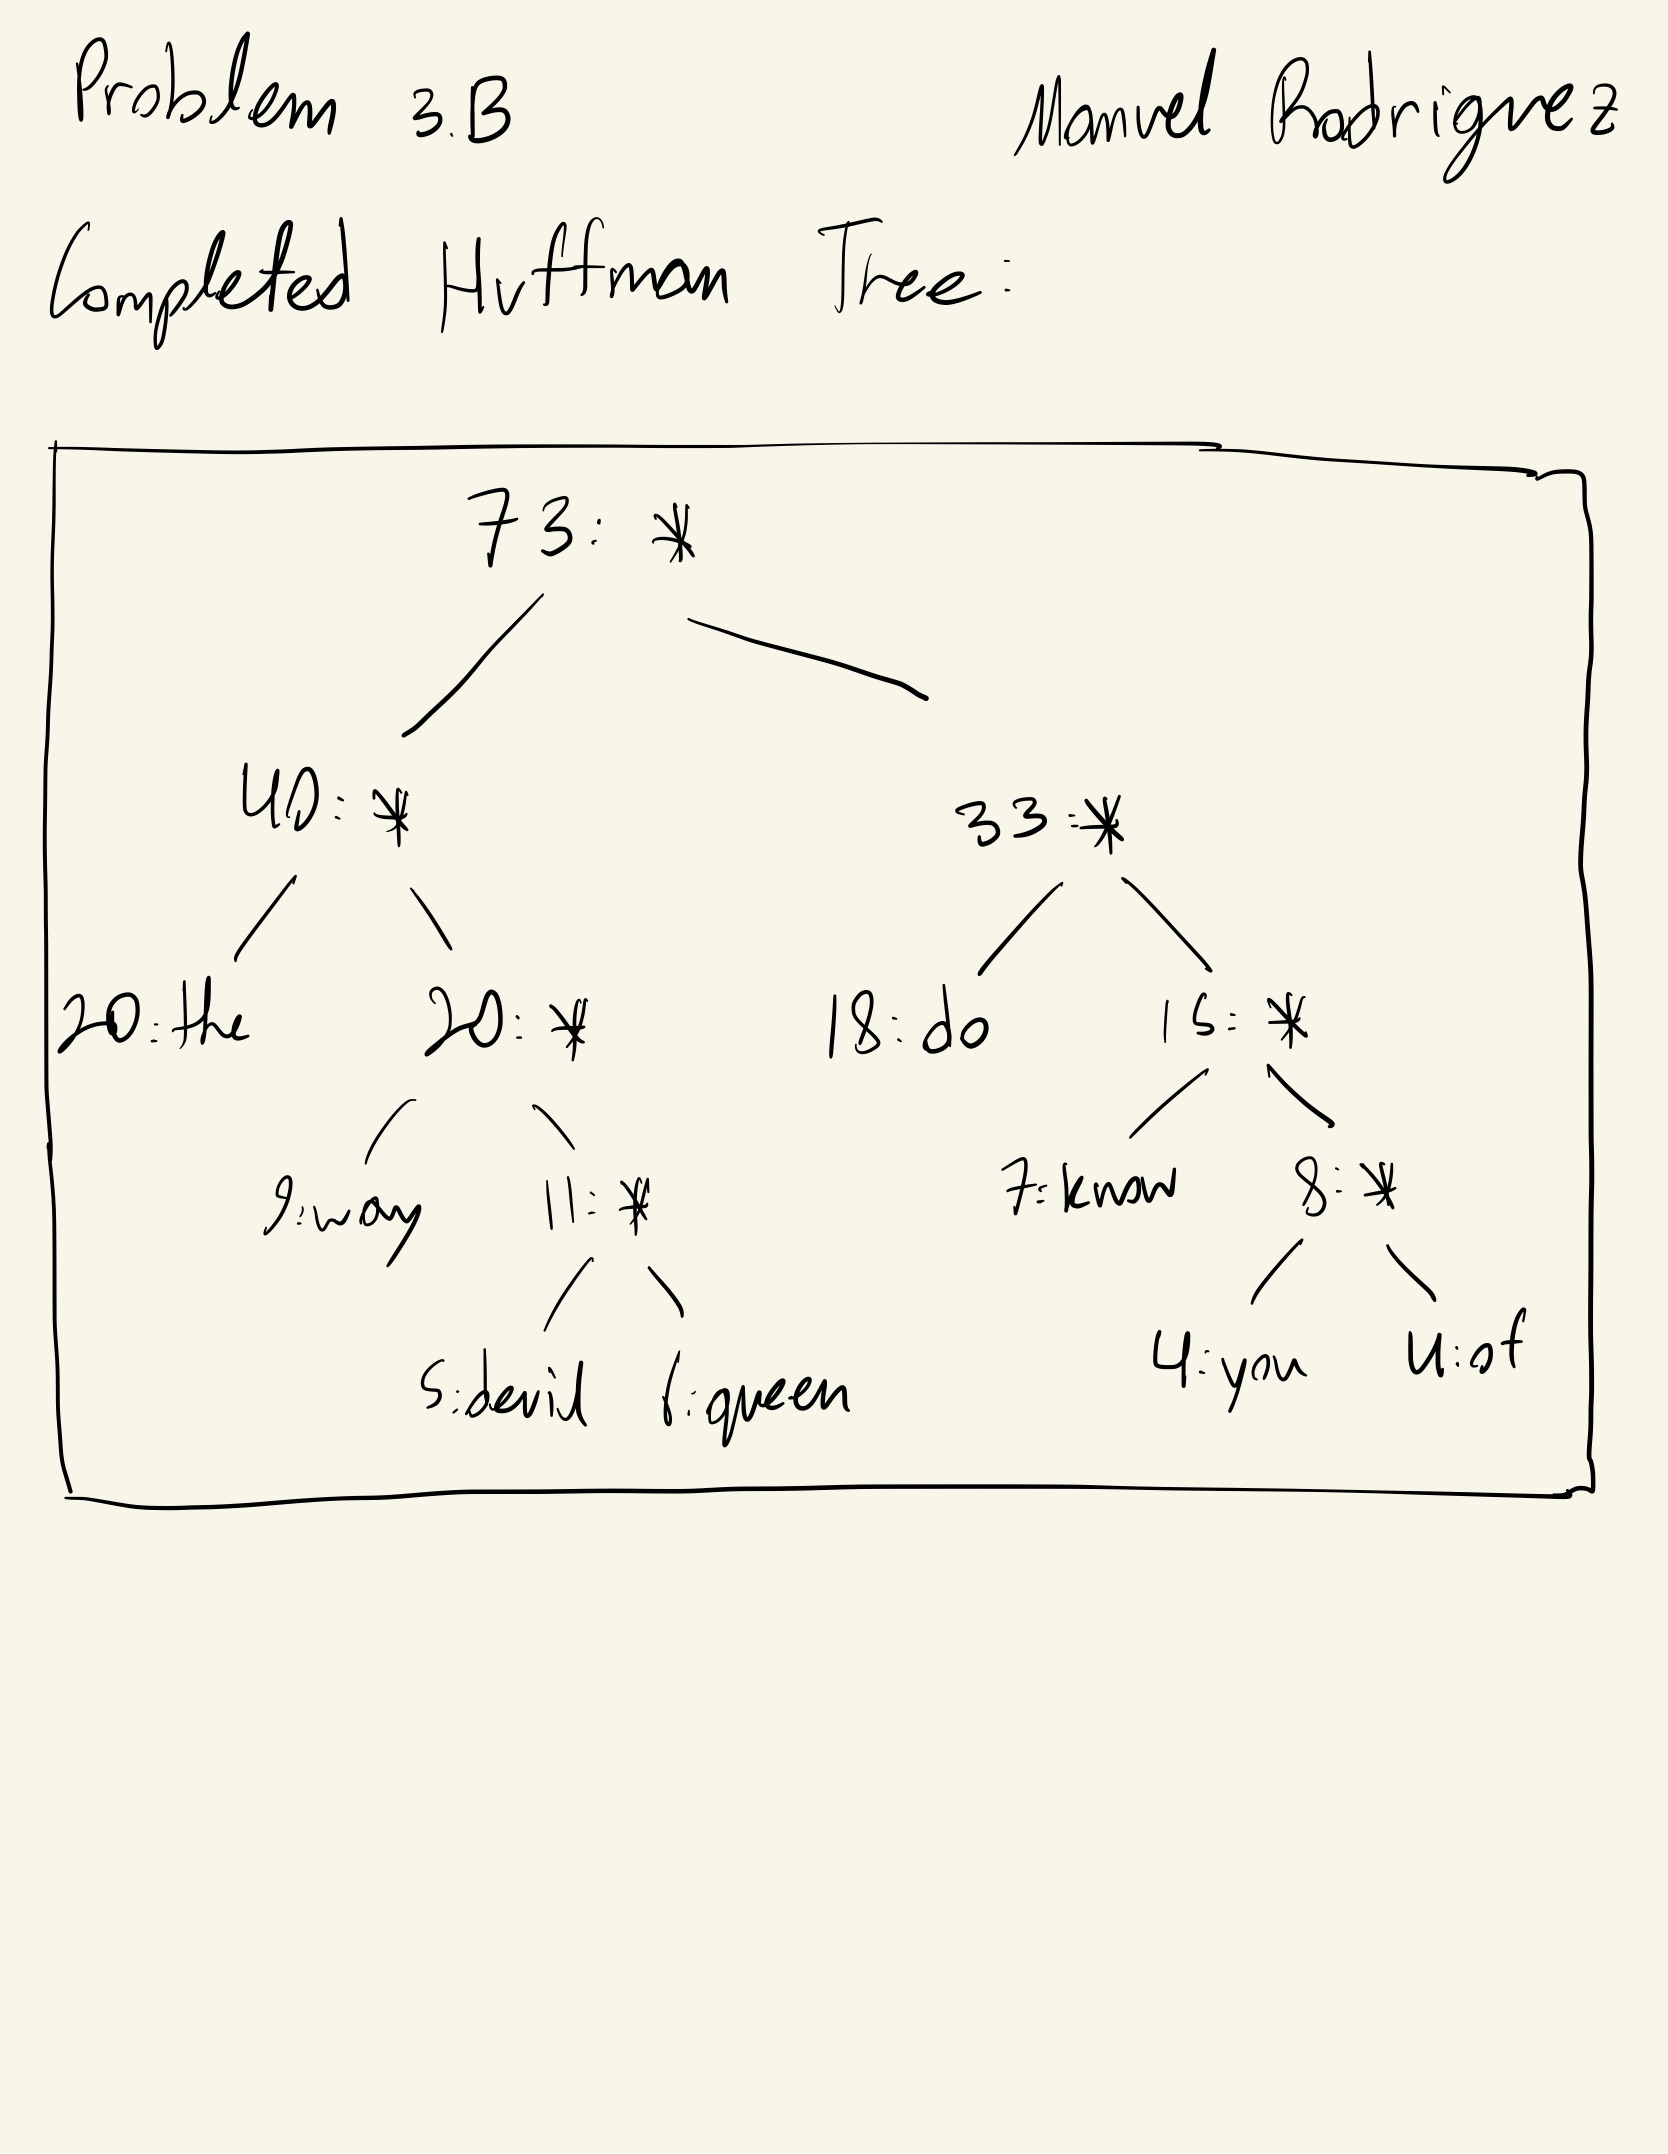 Problem 3.B Manuel Rodriguez
Completed Huffman Tree:
73: *
40: * 33: *
20: the 20: * 18: do 15: *
9: way 11: * 7: know 8: *
5: devil 6: queen 4: you 4: of